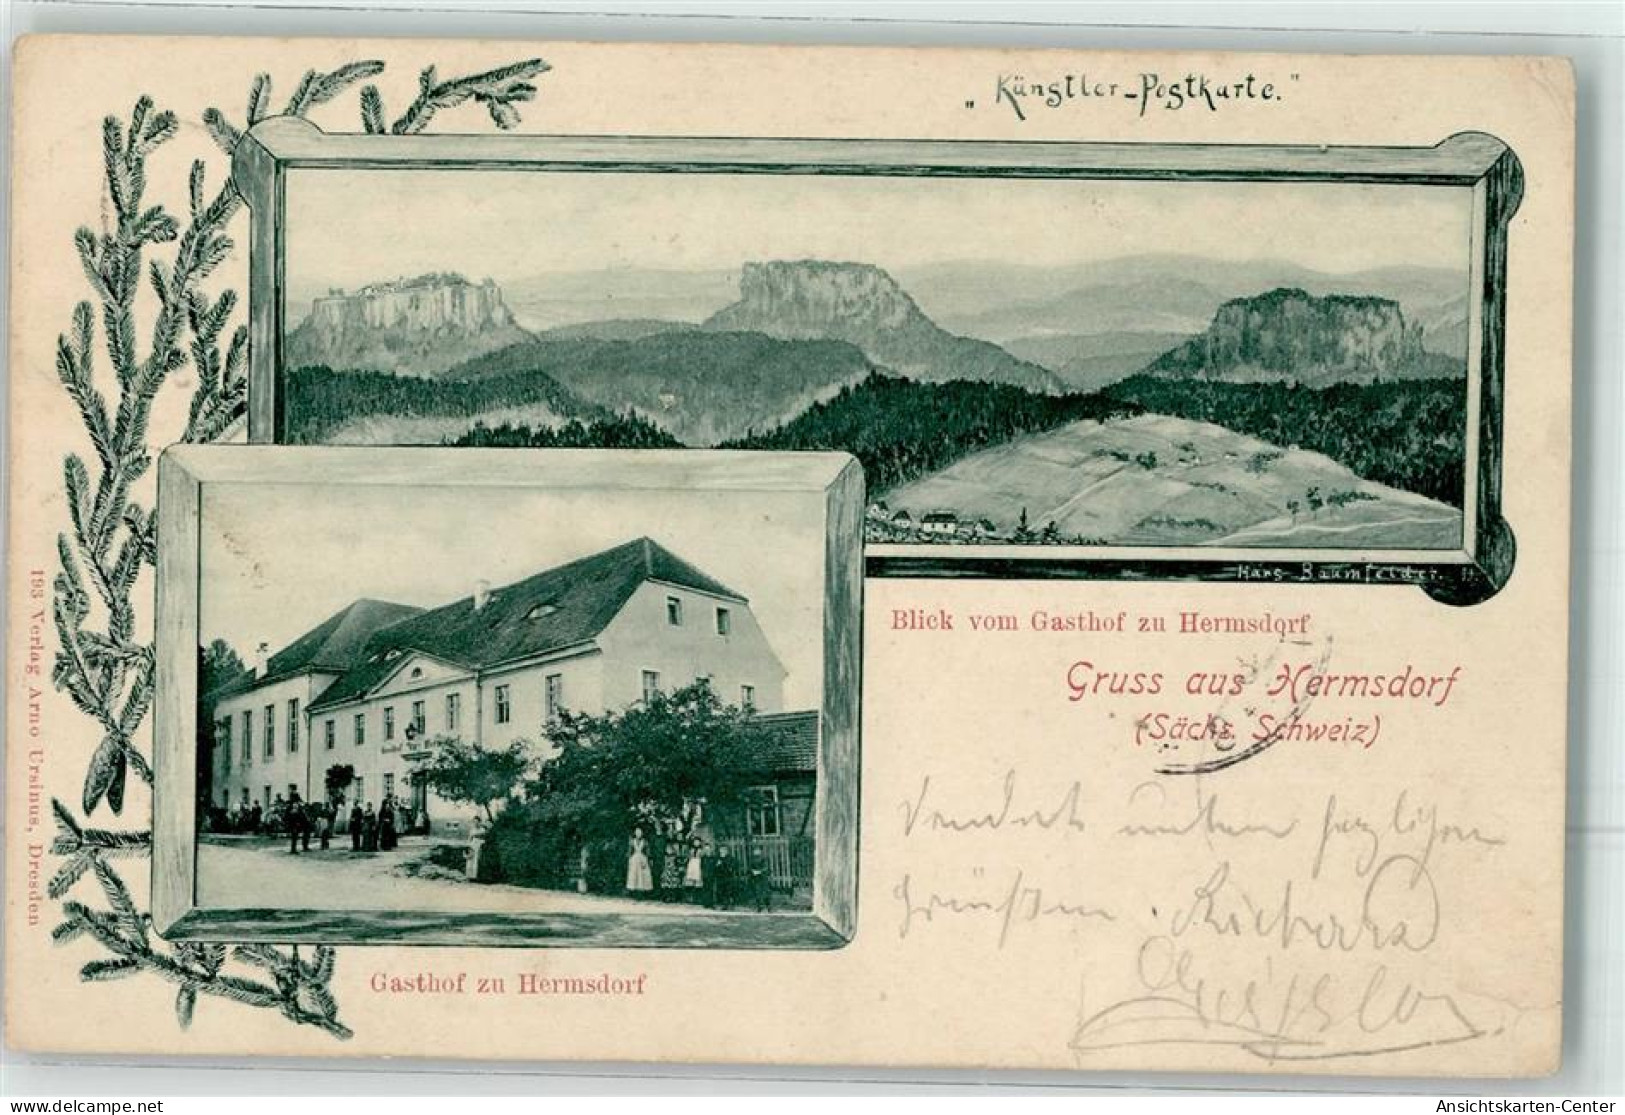 „Künstler-Postkarte."
Hans Baumfelder.
Blick vom Gasthof zu Hermsdorf
Gruss aus Hermsdorf
(Sächs. Schweiz)
Sendet unten herzlichen
Grüßen. Richard
Gasthof zu Hermsdorf
193 Verlag Arno Ursinus, Dresden
delcampe.net
Ansichtskarten-Center